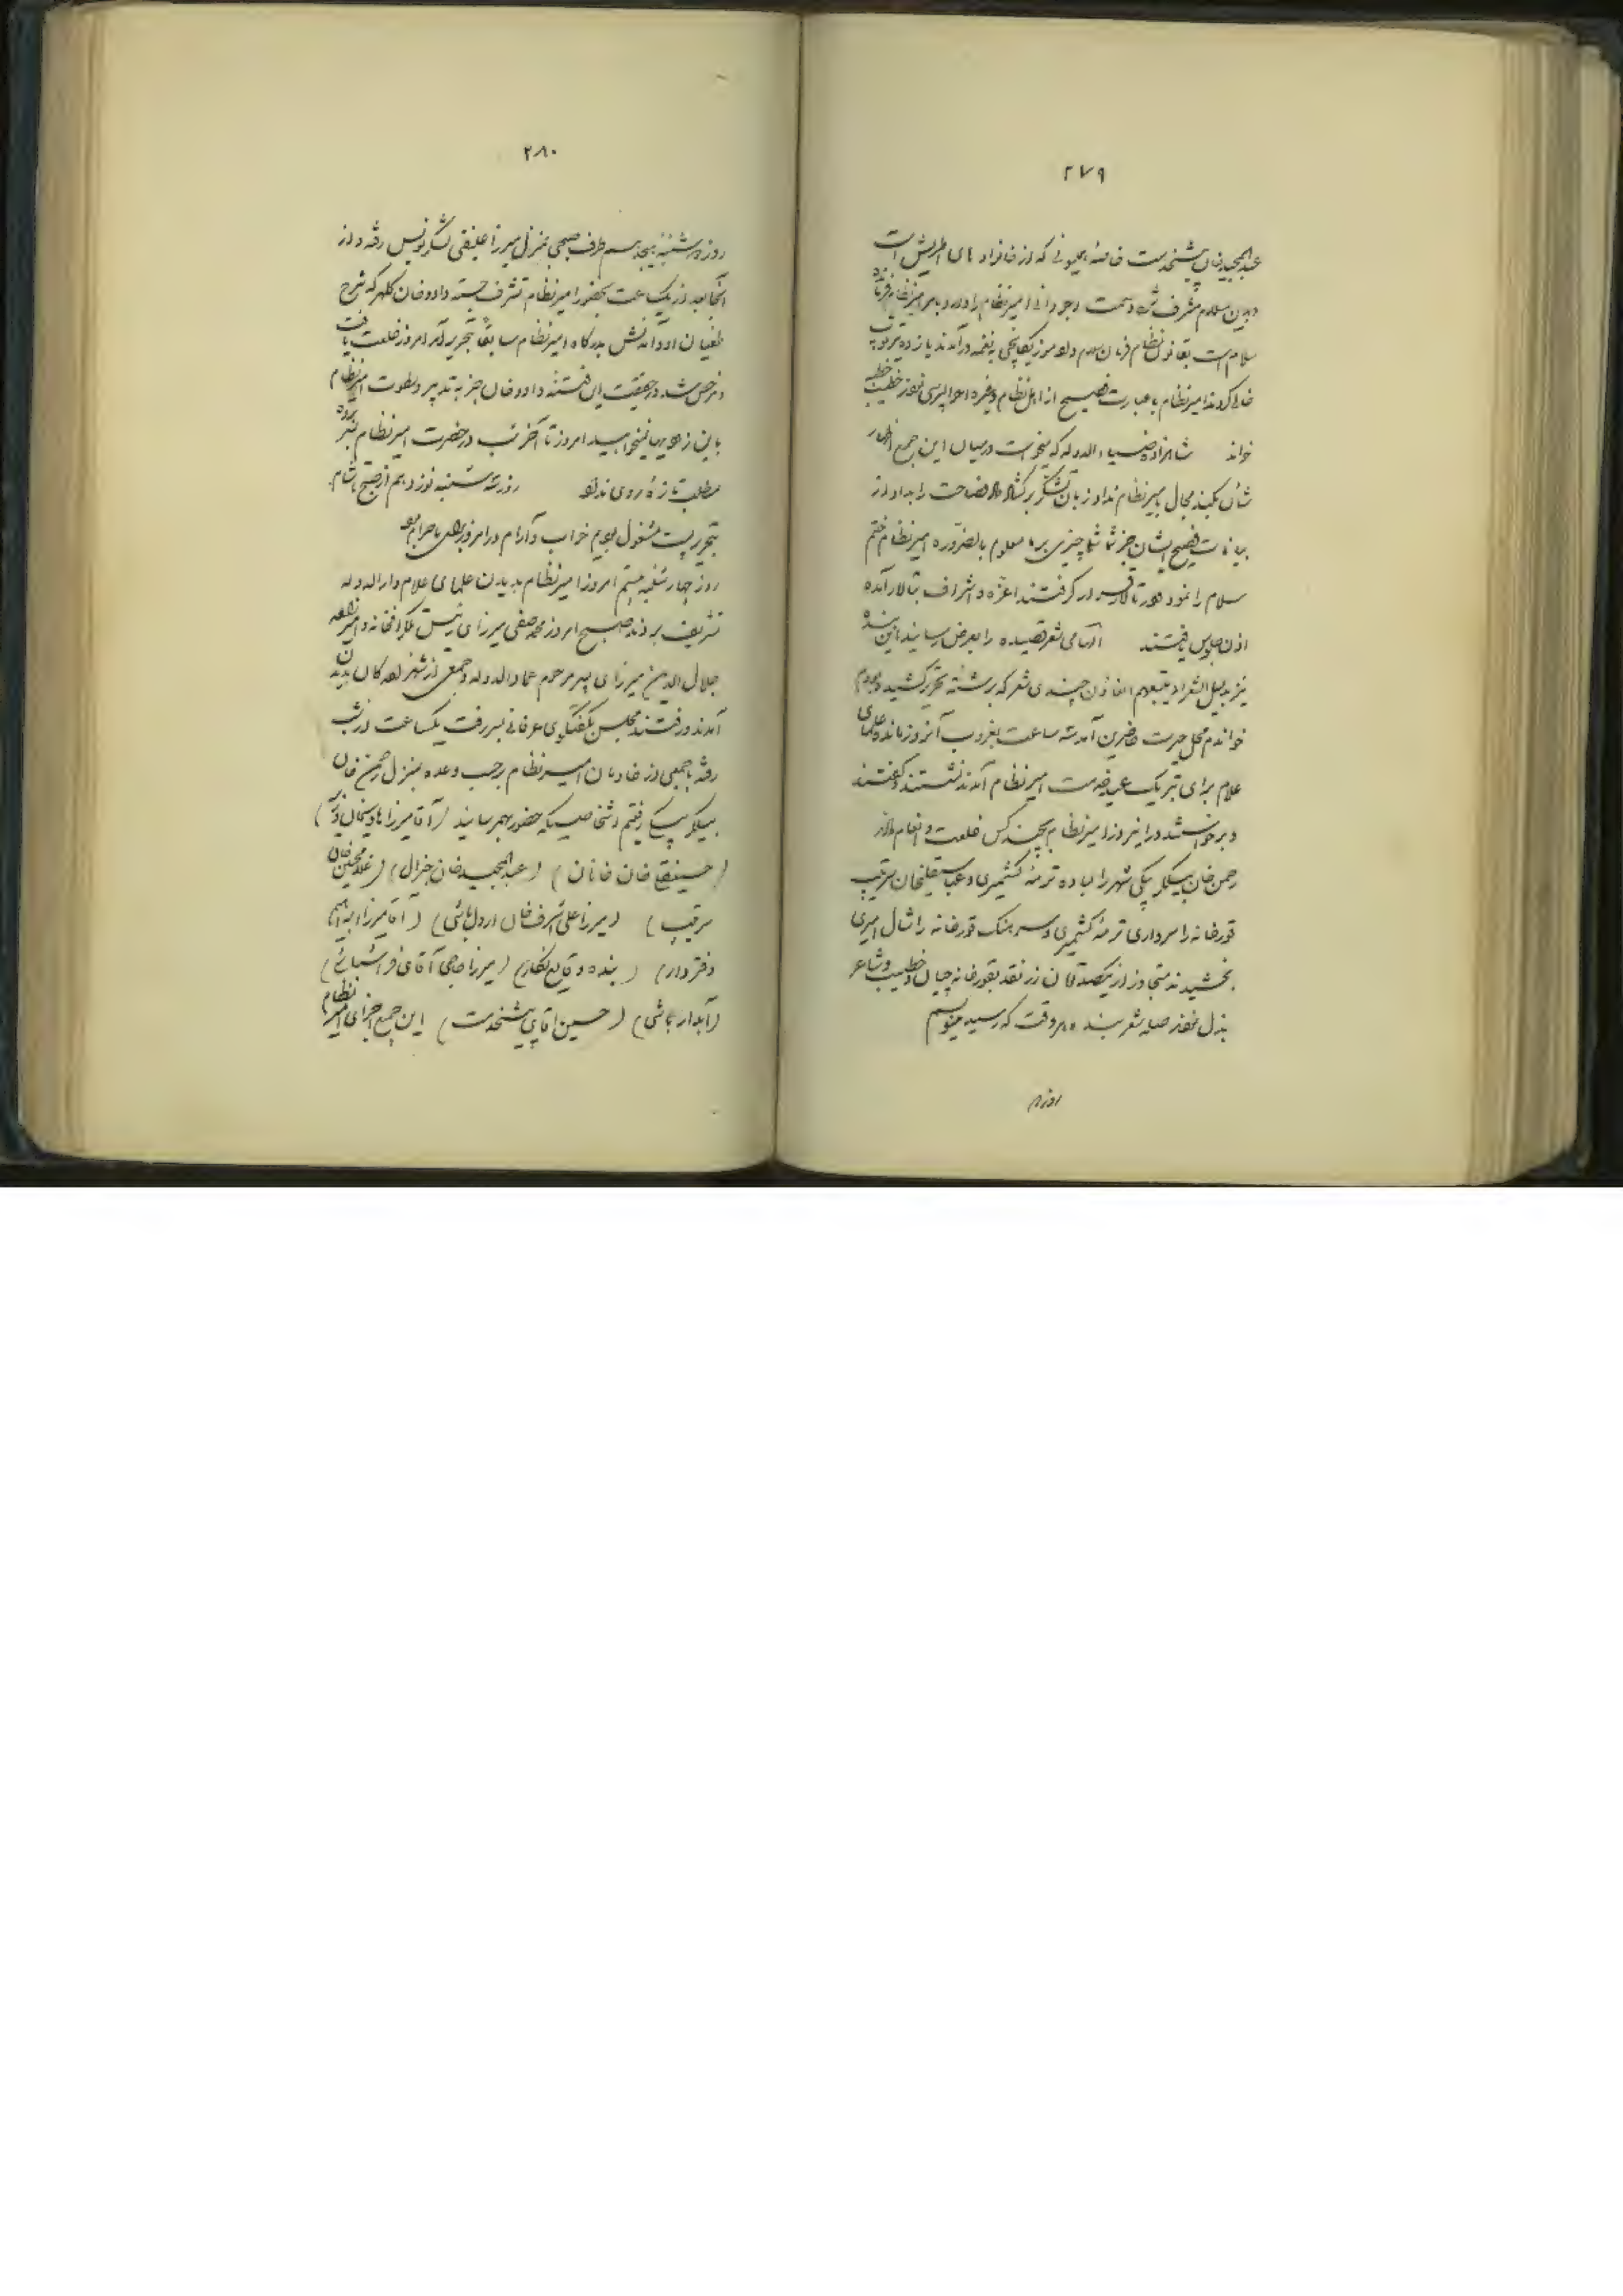 ۲۷۹
عبدالمجیدخان پیشخدمت خاصهٔ همیونی که از خانزاد های اطریش است
در این سلام مشرف شده و سمت اجودانی امیرنظام را دارد بامر امیرنظام
سلام است بقانون نظام فرمان سلام داد موزیکانچی بنغمه درآمدند یازده تیر توپ
خالی کردند امیرنظام با عبارت فصیح از اهل نظام و غیره احوالپرسی نمود خطیب خطبه
خواند شاهزاده ضیاء الدوله که میخواست در میان این جمع اظهار
شأن بکند مجال بامیرنظام نداد زبان تشکر برگشاد داد فصاحت را بداد از
بیانات فصیح ایشان جز شما شما چیزی بر ما معلوم بالضروره امیرنظام ختم
سلام را نمود در تالار قرار گرفتند اعزه و اشراف بتالار آمده
اذن جلوس یافتند الهامی شعر قصیده را بعرض رسانید این بنده
نیز بدلیل الشعراء یتبعهم الغاوون چندی شعر که برشتهٔ تحریر کشیده بودم
خواندم محل حیرت حاضرین آمد سه ساعت بغروب آنروز مانده علمای
علام برای تبریک عید خدمت امیرنظام آمدند نشستند و گفتند
و برخواستند در اینروز امیرنظام بچند کس خلعت و انعام دادند
رحمن خان بیگلربیگی شهر را لباده ترمهٔ کشمیری و عباسقلیخان سرتیپ
قورخانه را سرداری ترمهٔ کشمیری و سرهنگ قورخانه را شال امیری
بخشیدند متجاوز از یکصد تومان زر نقد بقورخانه چیان و خطیب و شاعر
بذل نمودند صله شعر بنده هر وقت که رسید مینویسم
روز دو
۲۸۰
روز دوشنبهٔ هیجدهم طرف صبحی بمنزل میرزا علینقی لشکرنویس رفته و از
آنجا بعد از یک ساعت بحضور امیرنظام تشرف جسته داودخان کلهر که شرح
طغیان او و آمدنش بدرگاه امیرنظام سابقاً تحریر آمد امروز خلعت یافت
و مرخص شد در حقیقت این فتنهٔ داودخان جز به تدبیر و سطوت امیرنظام
باین زودیها نمیخوابید امروز تا آخر شب در حضرت امیرنظام بسر برده
مطلب تازهٔ روی نداد روز سه شنبه نوزدهم از صبح تا شام
بتحریرات مشغول بودیم خواب و آرام در امروز برای ما حرام بود
روز چهارشنبهٔ بیستم امروز امیرنظام بدیدن علمای علام دارالدوله
تشریف بردند صبح امروز محمدصفی میرزای رئیس تلگرافخانه و
جلال الدین میرزای پسر مرحوم عمادالدوله و جمعی از شاهزادگان بدیدن
آمدند و رفتند مجلس بگفتگوی عرفانی بسر رفت یکساعت از شب
رفته با جمعی از خادمان امیرنظام برحسب وعده بمنزل رحمن خان
بیگلربیگی رفتیم اشخاصیکه حضور بهم رسانید (آقامیرزا
(حسینقلی خان خانان) (عبدالمجیدخان جنرال) (غلامحسین خان
سرتیپ) (میرزا علی اشرف خان اردل باشی) (آقا میرزا ابراهیم
دفتردار) (بنده وقایع نگار) (میرزا حاجی آقای فراشباشی)
(آبدارباشی) (حسین آقای پیشخدمت) این جمع اجزای امیرنظام